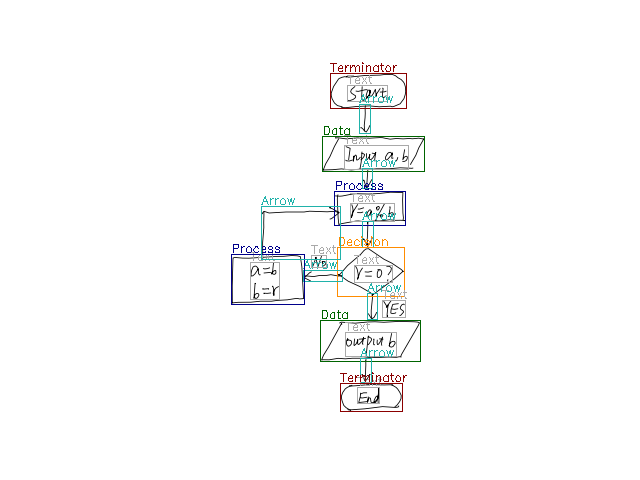 Terminator
Text
Start
Arrow
Data
Text
Input a, b
Arrow
Process
Text
r=a%b
Arrow
Arrow
Decision
Text
r=0?
Text
No
Arrow
Process
Text
a=b
b=r
Arrow
Text
YES
Data
Text
output b
Arrow
Terminator
Text
End